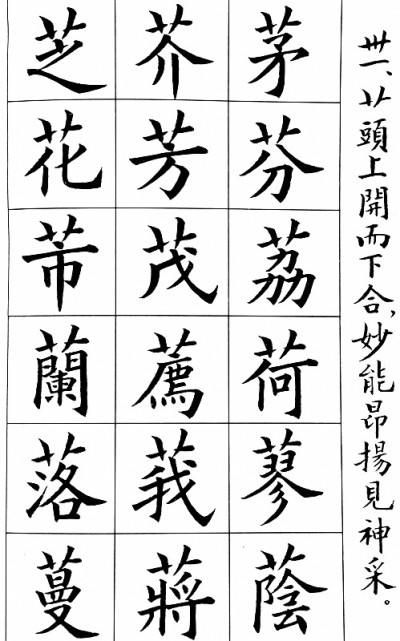 卅一、艹頭上開而下合,妙能昂揚見神采。
茅芬荔荷蓼蔭
芥芳茂薦莪蔣
芝花芾蘭落蔓